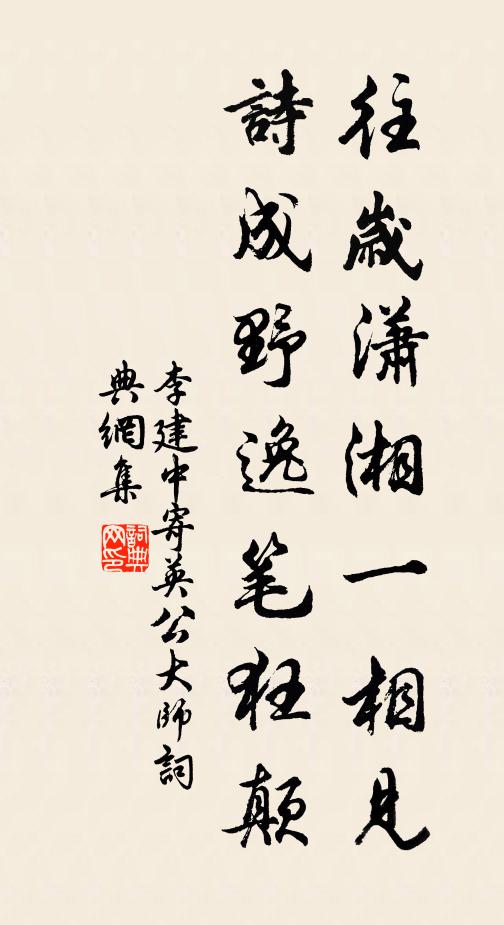 往歲瀟湘一相見
詩成野逸笔狂顛
李建中寄英公大師詞
典網集
詞典網印